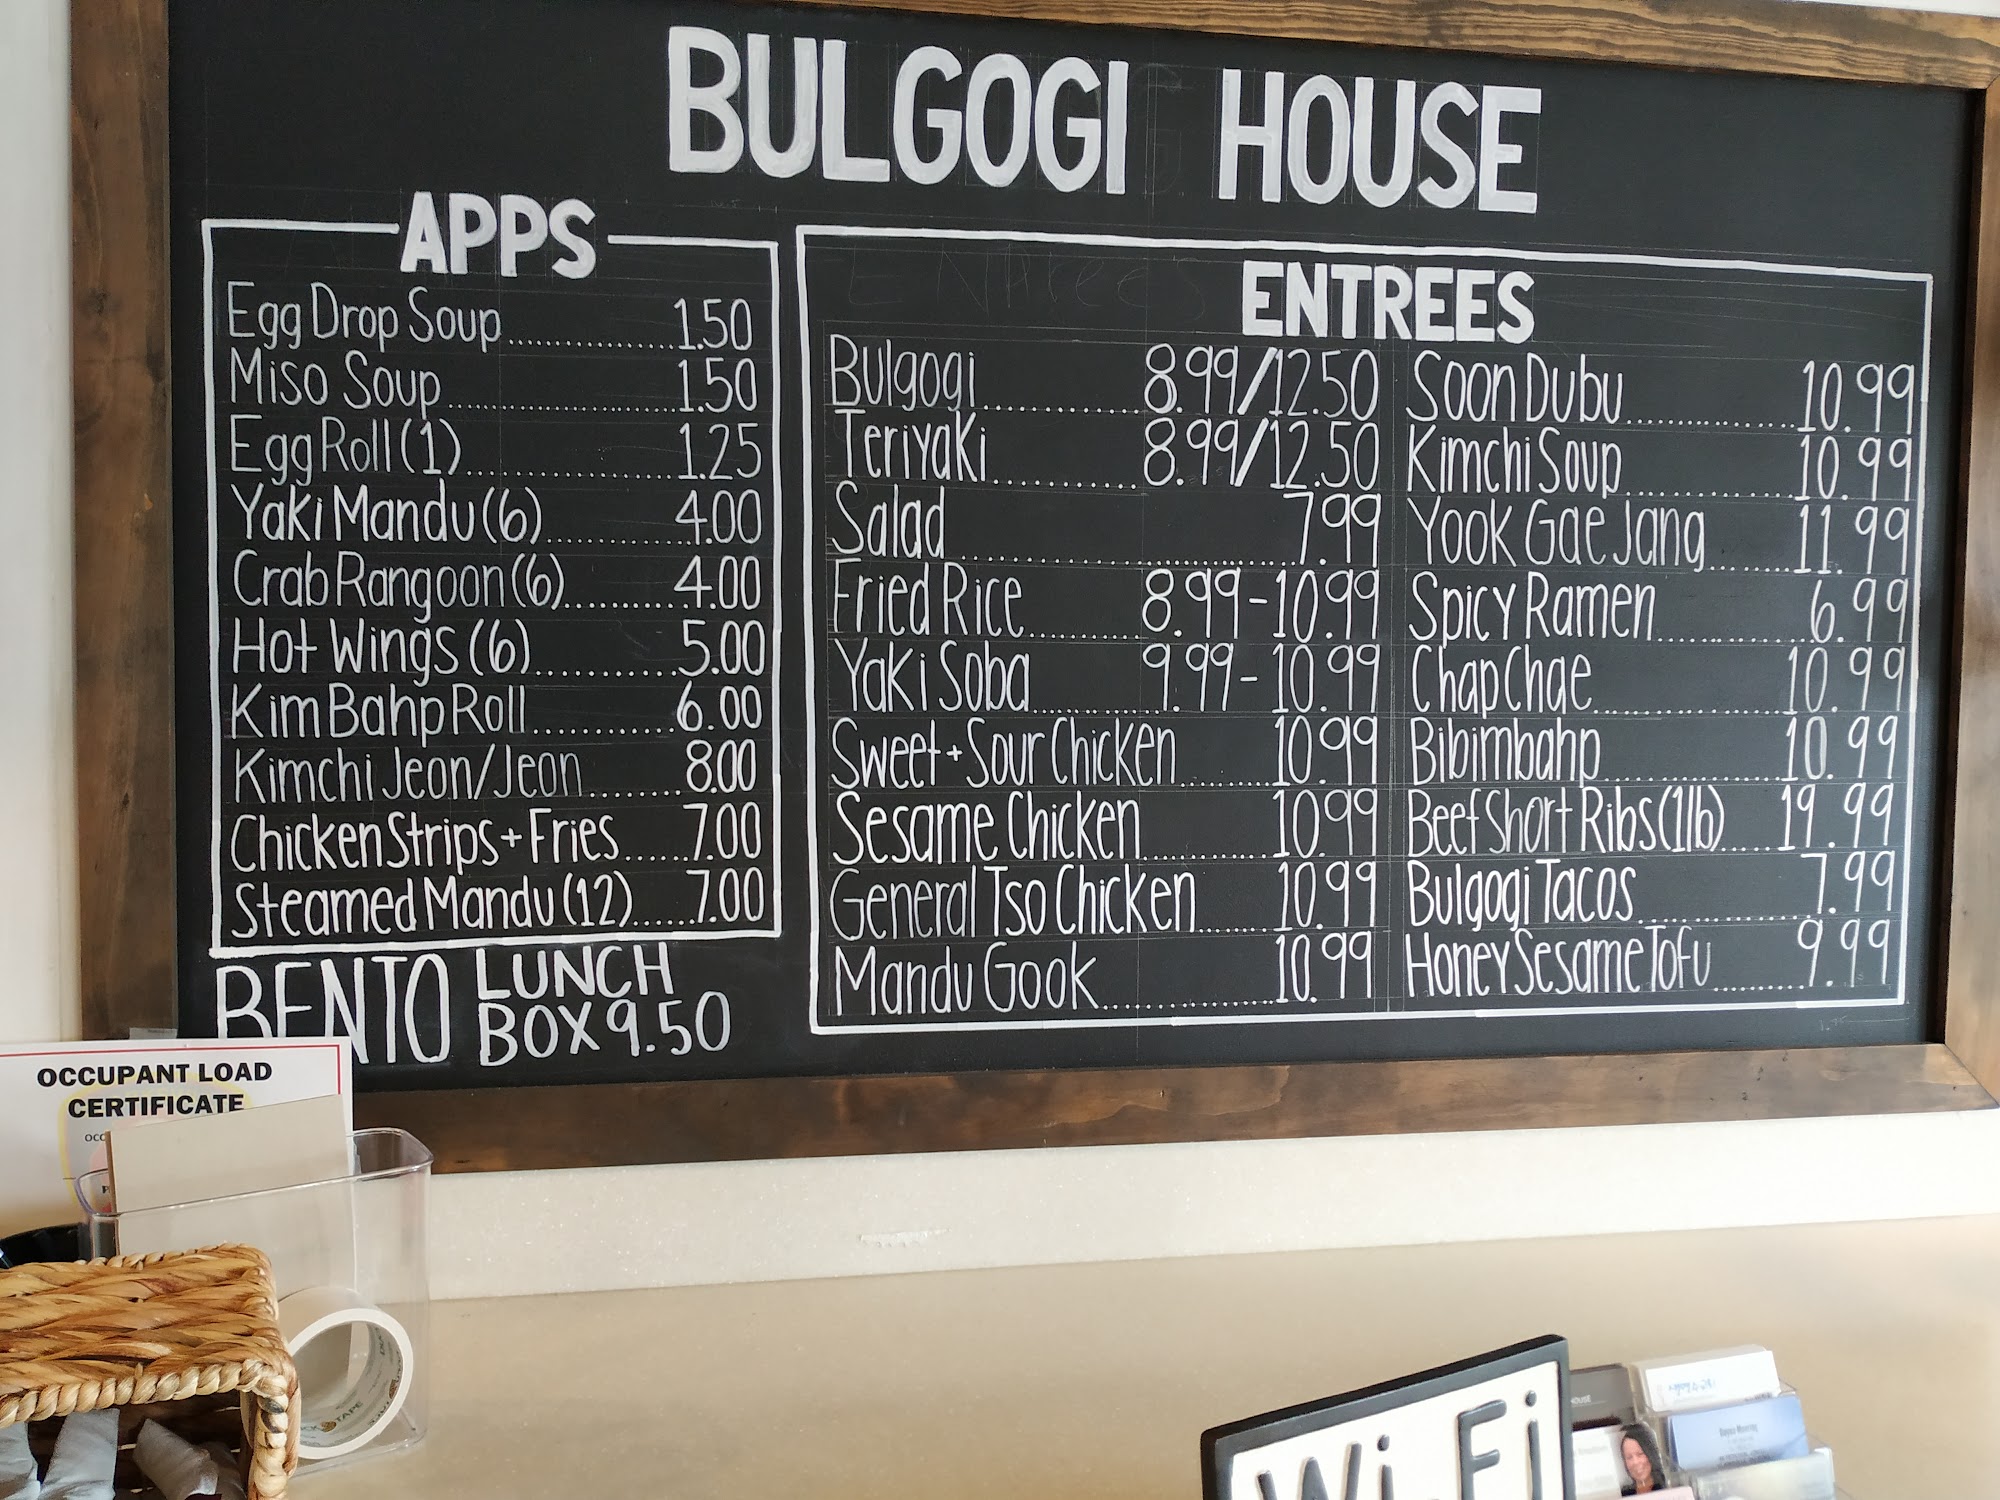 BULGOGI HOUSE
APPS
Egg Drop Soup................1.50
Miso Soup.......................1.50
Egg Roll (1).....................1.25
Yaki Mandu (6)..............4.00
Crab Rangoon (6)...........4.00
Hot Wings (6)................5.00
Kim Bahp Roll................6.00
Kimchi Jeon/Jeon.........8.00
Chicken Strips + Fries......7.00
Steamed Mandu (12)......7.00
BENTO LUNCH
BOX 9.50
ENTREES
Bulgogi..............8.99/12.50
Teriyaki..............8.99/12.50
Salad...............................7.99
Fried Rice...........8.99-10.99
Yaki Soba...........9.99-10.99
Sweet + Sour Chicken........10.99
Sesame Chicken............10.99
General Tso Chicken.......10.99
Mandu Gook................10.99
Soon Dubu.................10.99
Kimchi Soup................10.99
Yook Gae Jang..........11.99
Spicy Ramen..............6.99
Chap Chae...................10.99
Bibimbahp..................10.99
Beef Short Ribs (1lb).....19.99
Bulgogi Tacos...............7.99
Honey Sesame Tofu.........9.99
OCCUPANT LOAD
CERTIFICATE
TAPE
Wi Fi